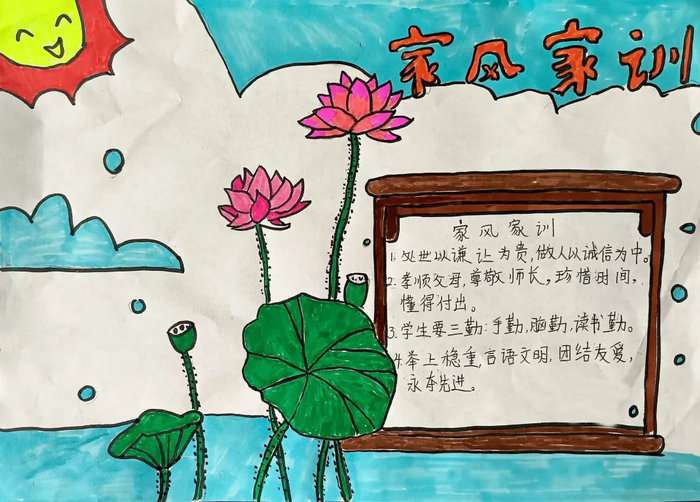 家风家训
家风家训
1.处世以谦让为贵,做人以诚信为中。
2.孝顺父母,尊敬师长,珍惜时间,
懂得付出。
3.学生要三勤:手勤,脑勤,读书勤。
4.举止稳重,言语文明,团结友爱,
永争先进。